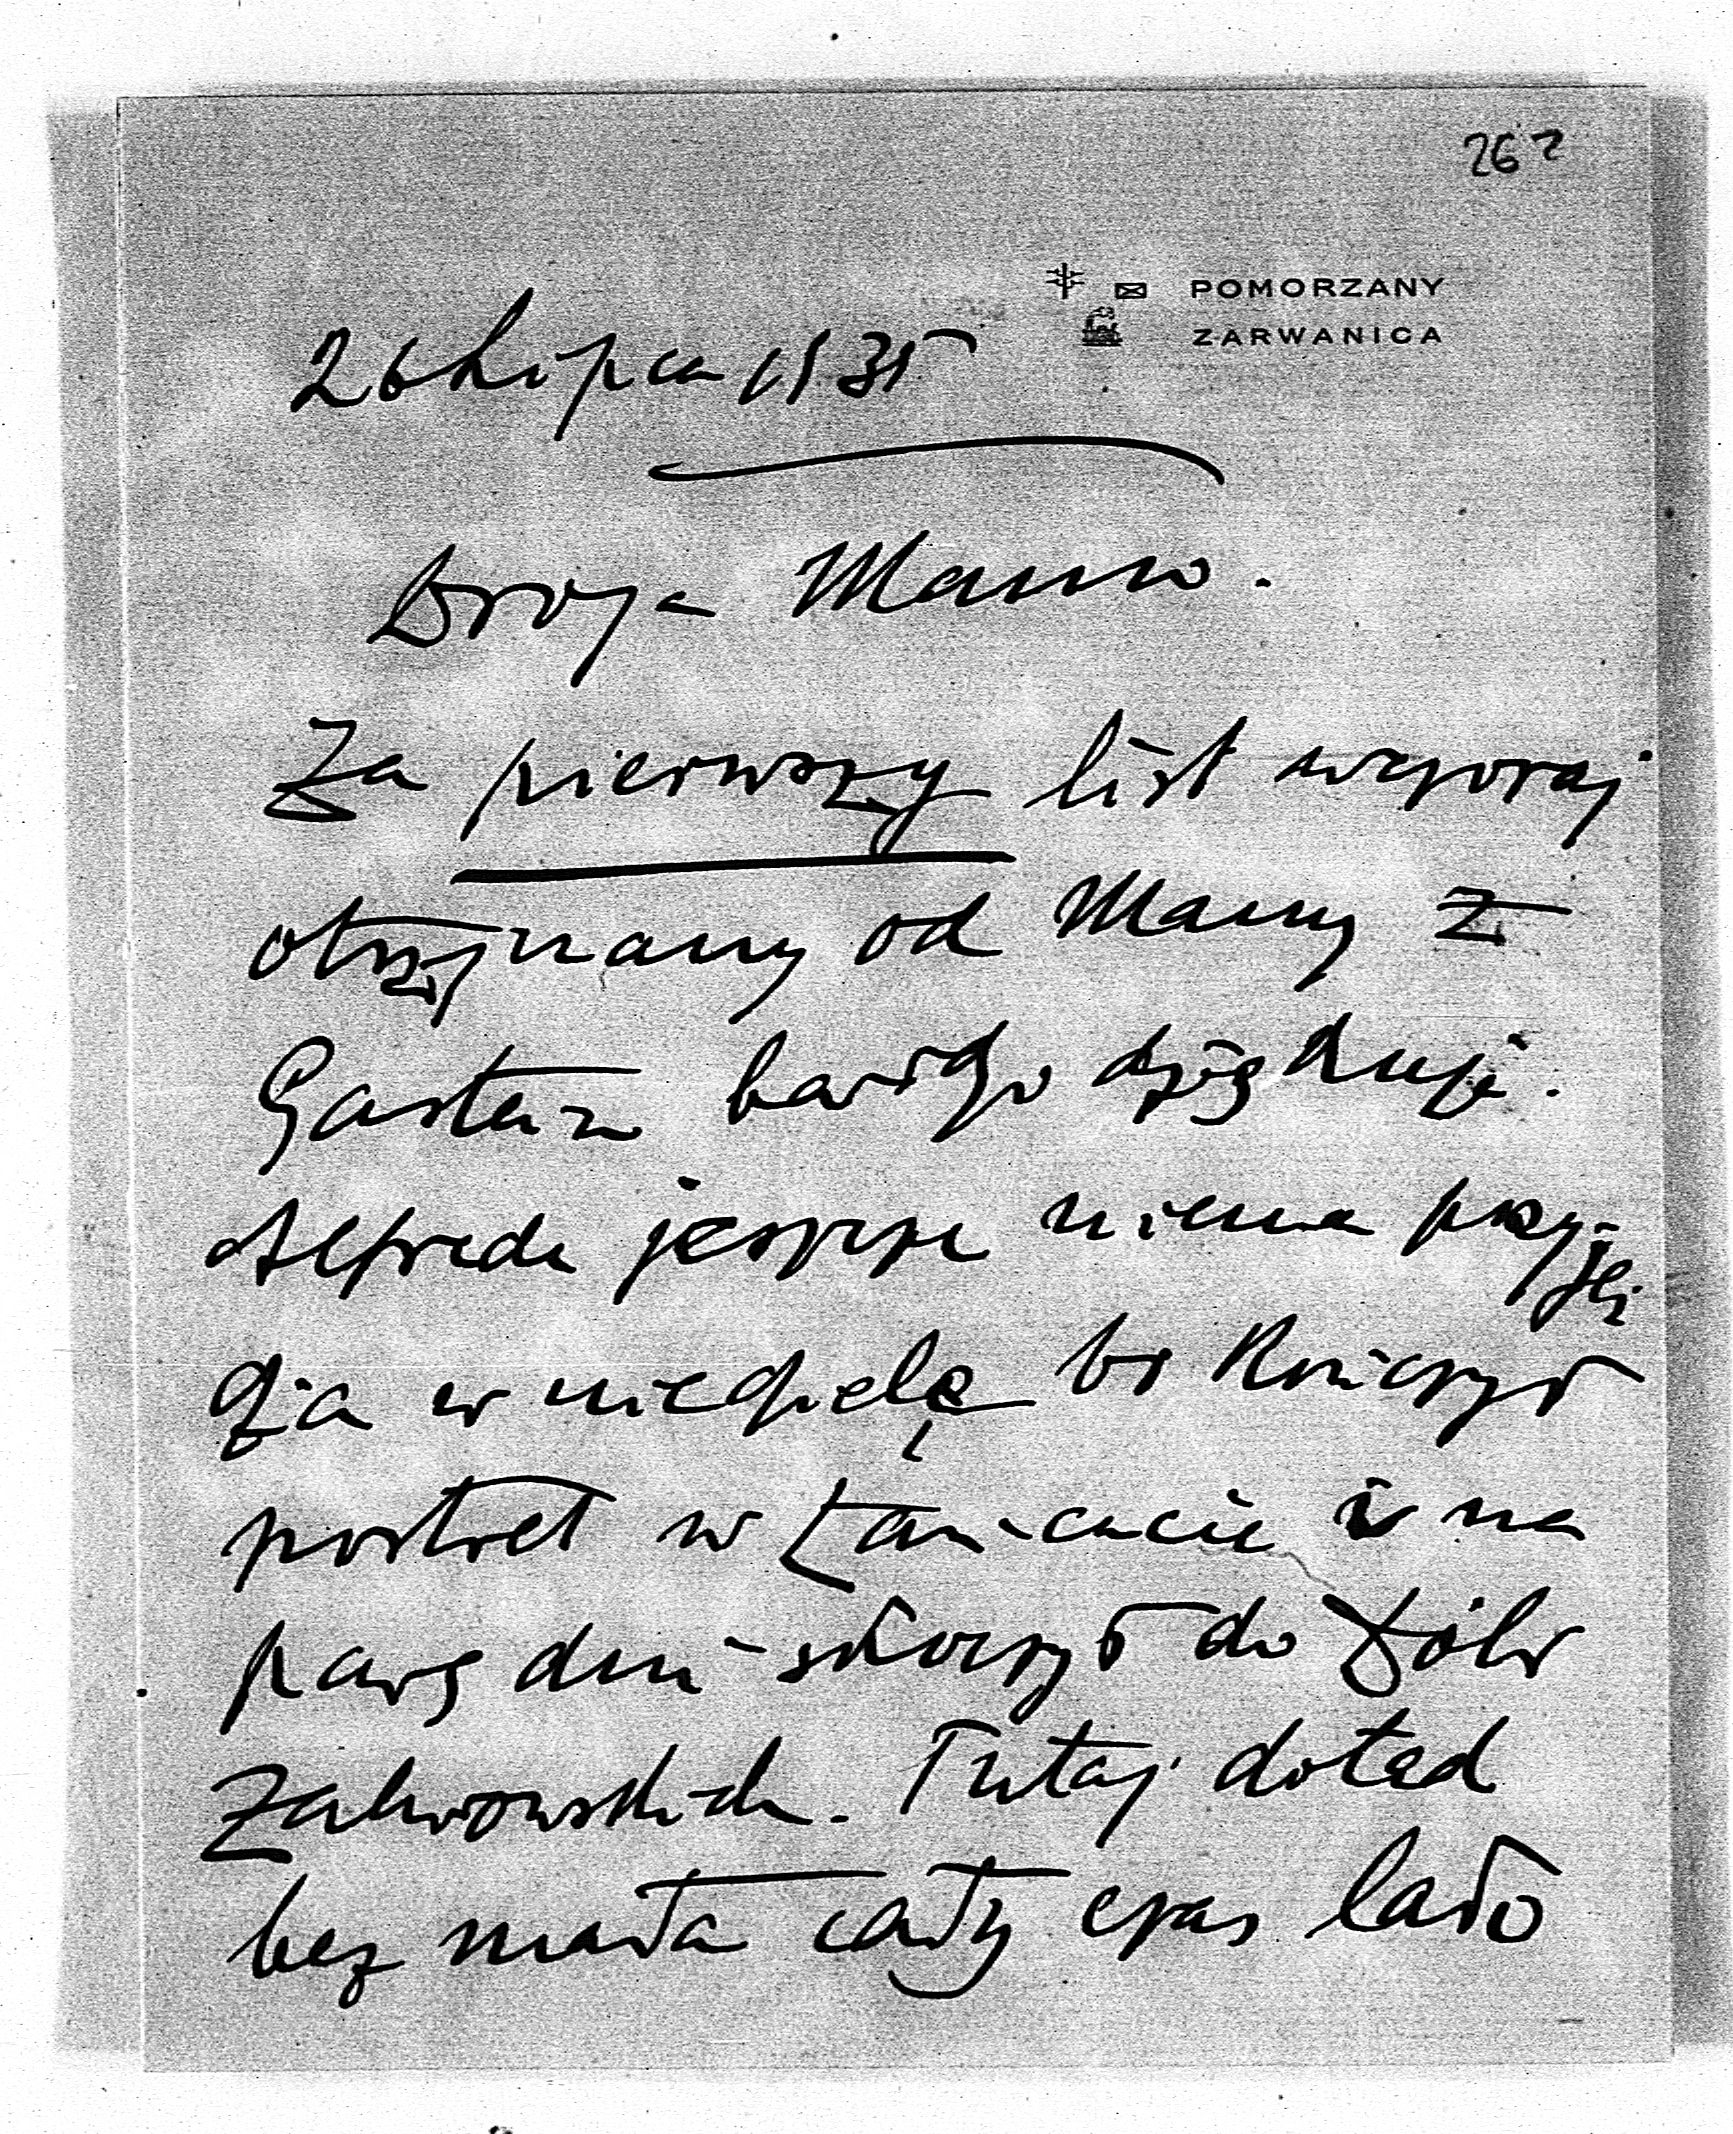 262
POMORZANY
ZARWANICA
26 Lipca 1935
Droga Mamo.
Za pierwszy list wczoraj
otrzymany od Mamy z
Gastein bardzo dziękuję.
Alfreda jeszcze niema przyje-
dzia w niedzielę bo kończył
portret w Łańcucie i na
parę dni skoczył do Dóbr
Zalwowskich. Tutaj dotąd
bez mała cały czas lało